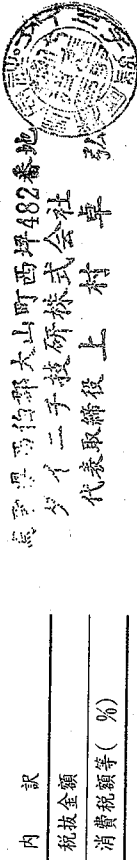 鳥取県西伯郡大山町西坪482番地
ダイニチ技研株式会社
代表取締役 上 村 卓 弘
内 訳
税抜金額
消費税額等( %)